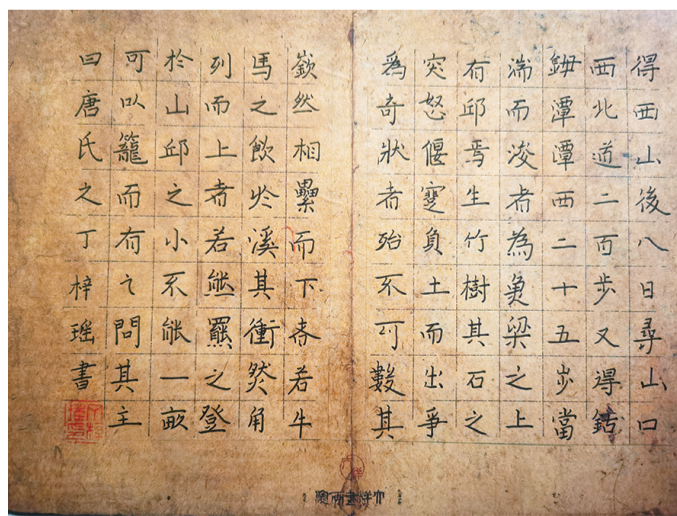 得西山後八日尋山口
西北道二百步又得鈷
鉧潭潭西二十五步當
湍而浚者為魚梁之上
有邱焉生竹樹其石之
突怒偃蹇負土而出爭
爲奇狀者殆不可數其
嶔然相纍而下者若牛
馬之飲於溪其衝然角
列而上者若熊羆之登
於山邱之小不能一畝
可以籠而有之問其主
曰唐氏之丁梓瑤書